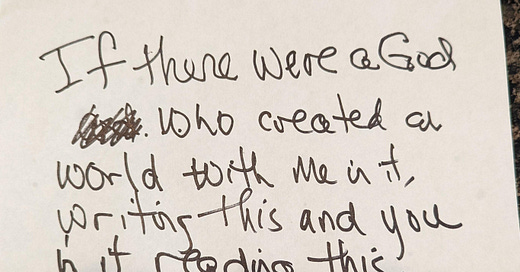 If there were a God
who created a
world with me in it,
writing this and you
in it reading this